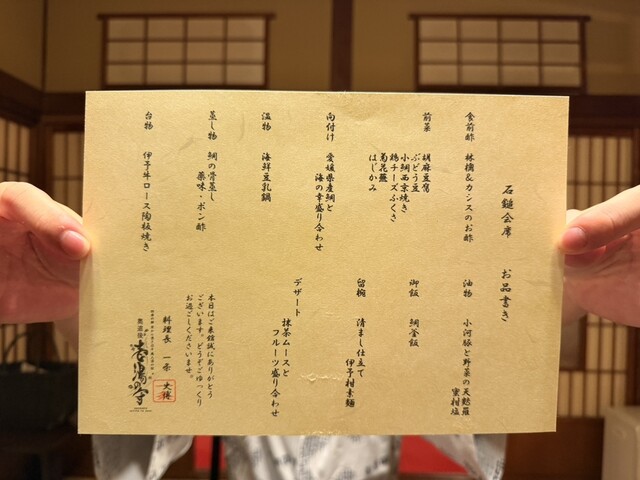 石鎚会席　お品書き
食前酢　林檎&カシスのお酢
前菜　胡麻豆腐
ぶどう豆
小鯛西京焼き
鶏チーズふくさ
菊花蕪
はじかみ
向付け　愛媛県産鯛と
海の幸盛り合わせ
温物　海鮮豆乳鍋
蒸し物　鯛の骨蒸し
薬味・ポン酢
台物　伊予牛ロース陶板焼き
油物　小河豚と野菜の天麩羅
蜜柑塩
御飯　鯛釜飯
留椀　清まし仕立て
伊予柑素麺
デザート
抹茶ムースと
フルーツ盛り合わせ
本日はご来館誠にありがとう
ございます。どうぞごゆっくり
お過ごしくださいませ。
料理長　一条
奥道後
壱湯の守